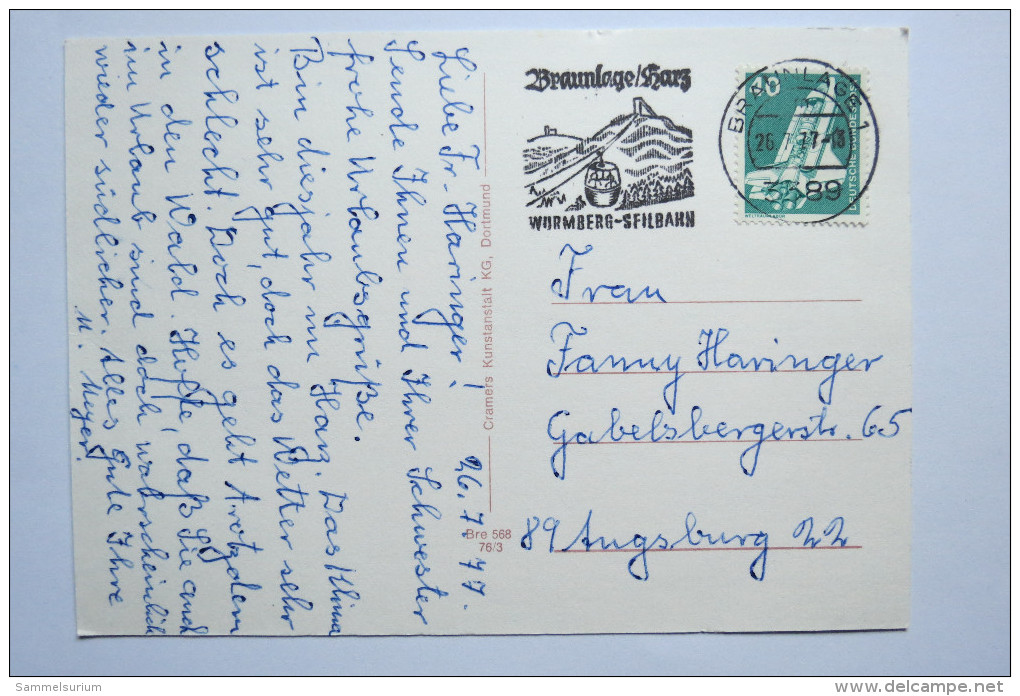 26.7.77.
Liebe Fr. Haringer!
Sende Ihnen und Ihrer Schwester
frohe Urlaubsgrüße.
Bin diesjahr im Harz. Das Klima
ist sehr gut, doch das Wetter sehr
schlecht. Doch es geht trotzdem
in den Wald. Hoffe, daß Sie auch
im Urlaub sind doch warscheinlich
wieder südlicher. Alles Gute Ihre
M. Meyer.
Cramers Kunstanstalt KG, Dortmund
Bre 568
76/3
Braunlage/Harz
WURMBERG-SEILBAHN
BRAUNLAGE 1
26.7.77-13
3389
40
DEUTSCHE BUNDESPOST
WELTRAUMLABOR
Frau
Fanny Haringer
Gabelsbergerstr. 65
89 Augsburg 22
Sammelsurium
www.delcampe.net